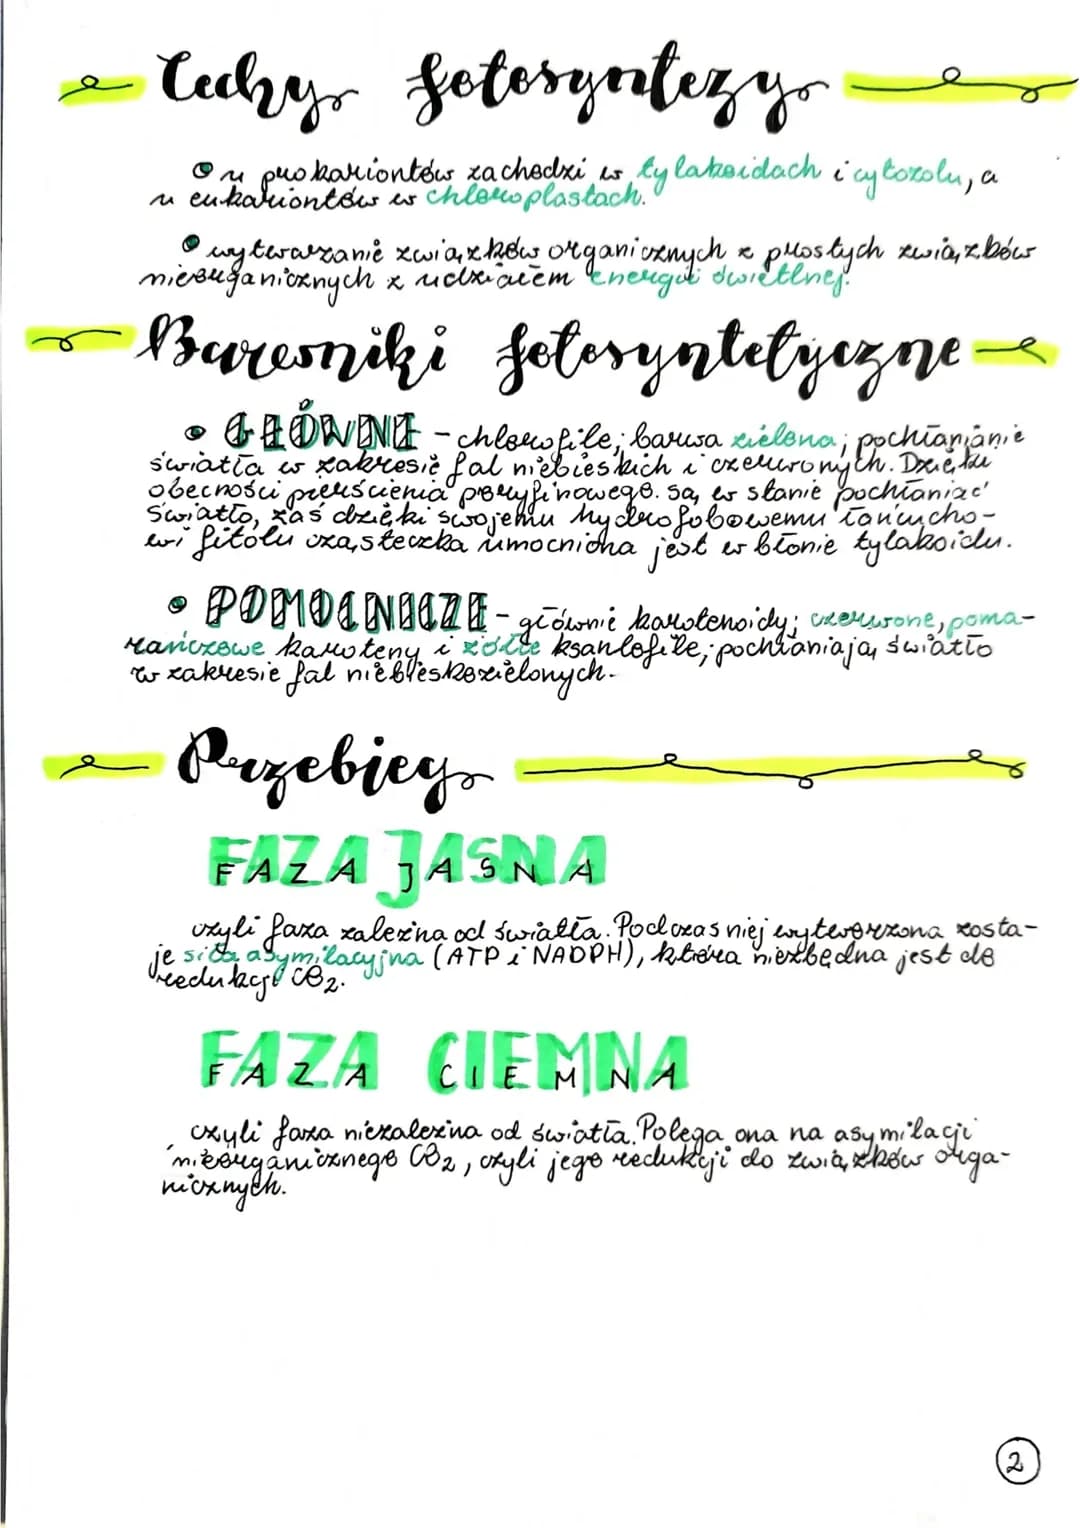 Cechy fotosyntezy
• u prokariontów zachodzi w tylakoidach i cytozolu, a
u eukariontów w chloroplastach.
• wytwarzanie związków organicznych z prostych związków
nieorganicznych z udziałem energii świetlnej.
Barwniki fotosyntetyczne
• GŁÓWNE - chlorofile; barwa zielona; pochłanianie
światła w zakresie fal niebieskich i czerwonych. Dzięki
obecności pierścienia poryfinowego są w stanie pochłaniać
światło, zaś dzięki swojemu hydrofobowemu łańcucho-
wi fitolu cząsteczka umocniona jest w błonie tylakoidu.
• POMOCNICZE - głównie karotenoidy; czerwone, poma-
rańczowe karoteny i żółte ksantofile; pochłaniają światło
w zakresie fal niebieskozielonych.
Przebieg
FAZA JASNA
czyli faza zależna od światła. Podczas niej wytworzona zosta-
je siła asymilacyjna (ATP i NADPH), która niezbędna jest do
redukcji CO2.
FAZA CIEMNA
czyli faza niezależna od światła. Polega ona na asymilacji
nieorganicznego CO2, czyli jego redukcji do związków orga-
nicznych.
2